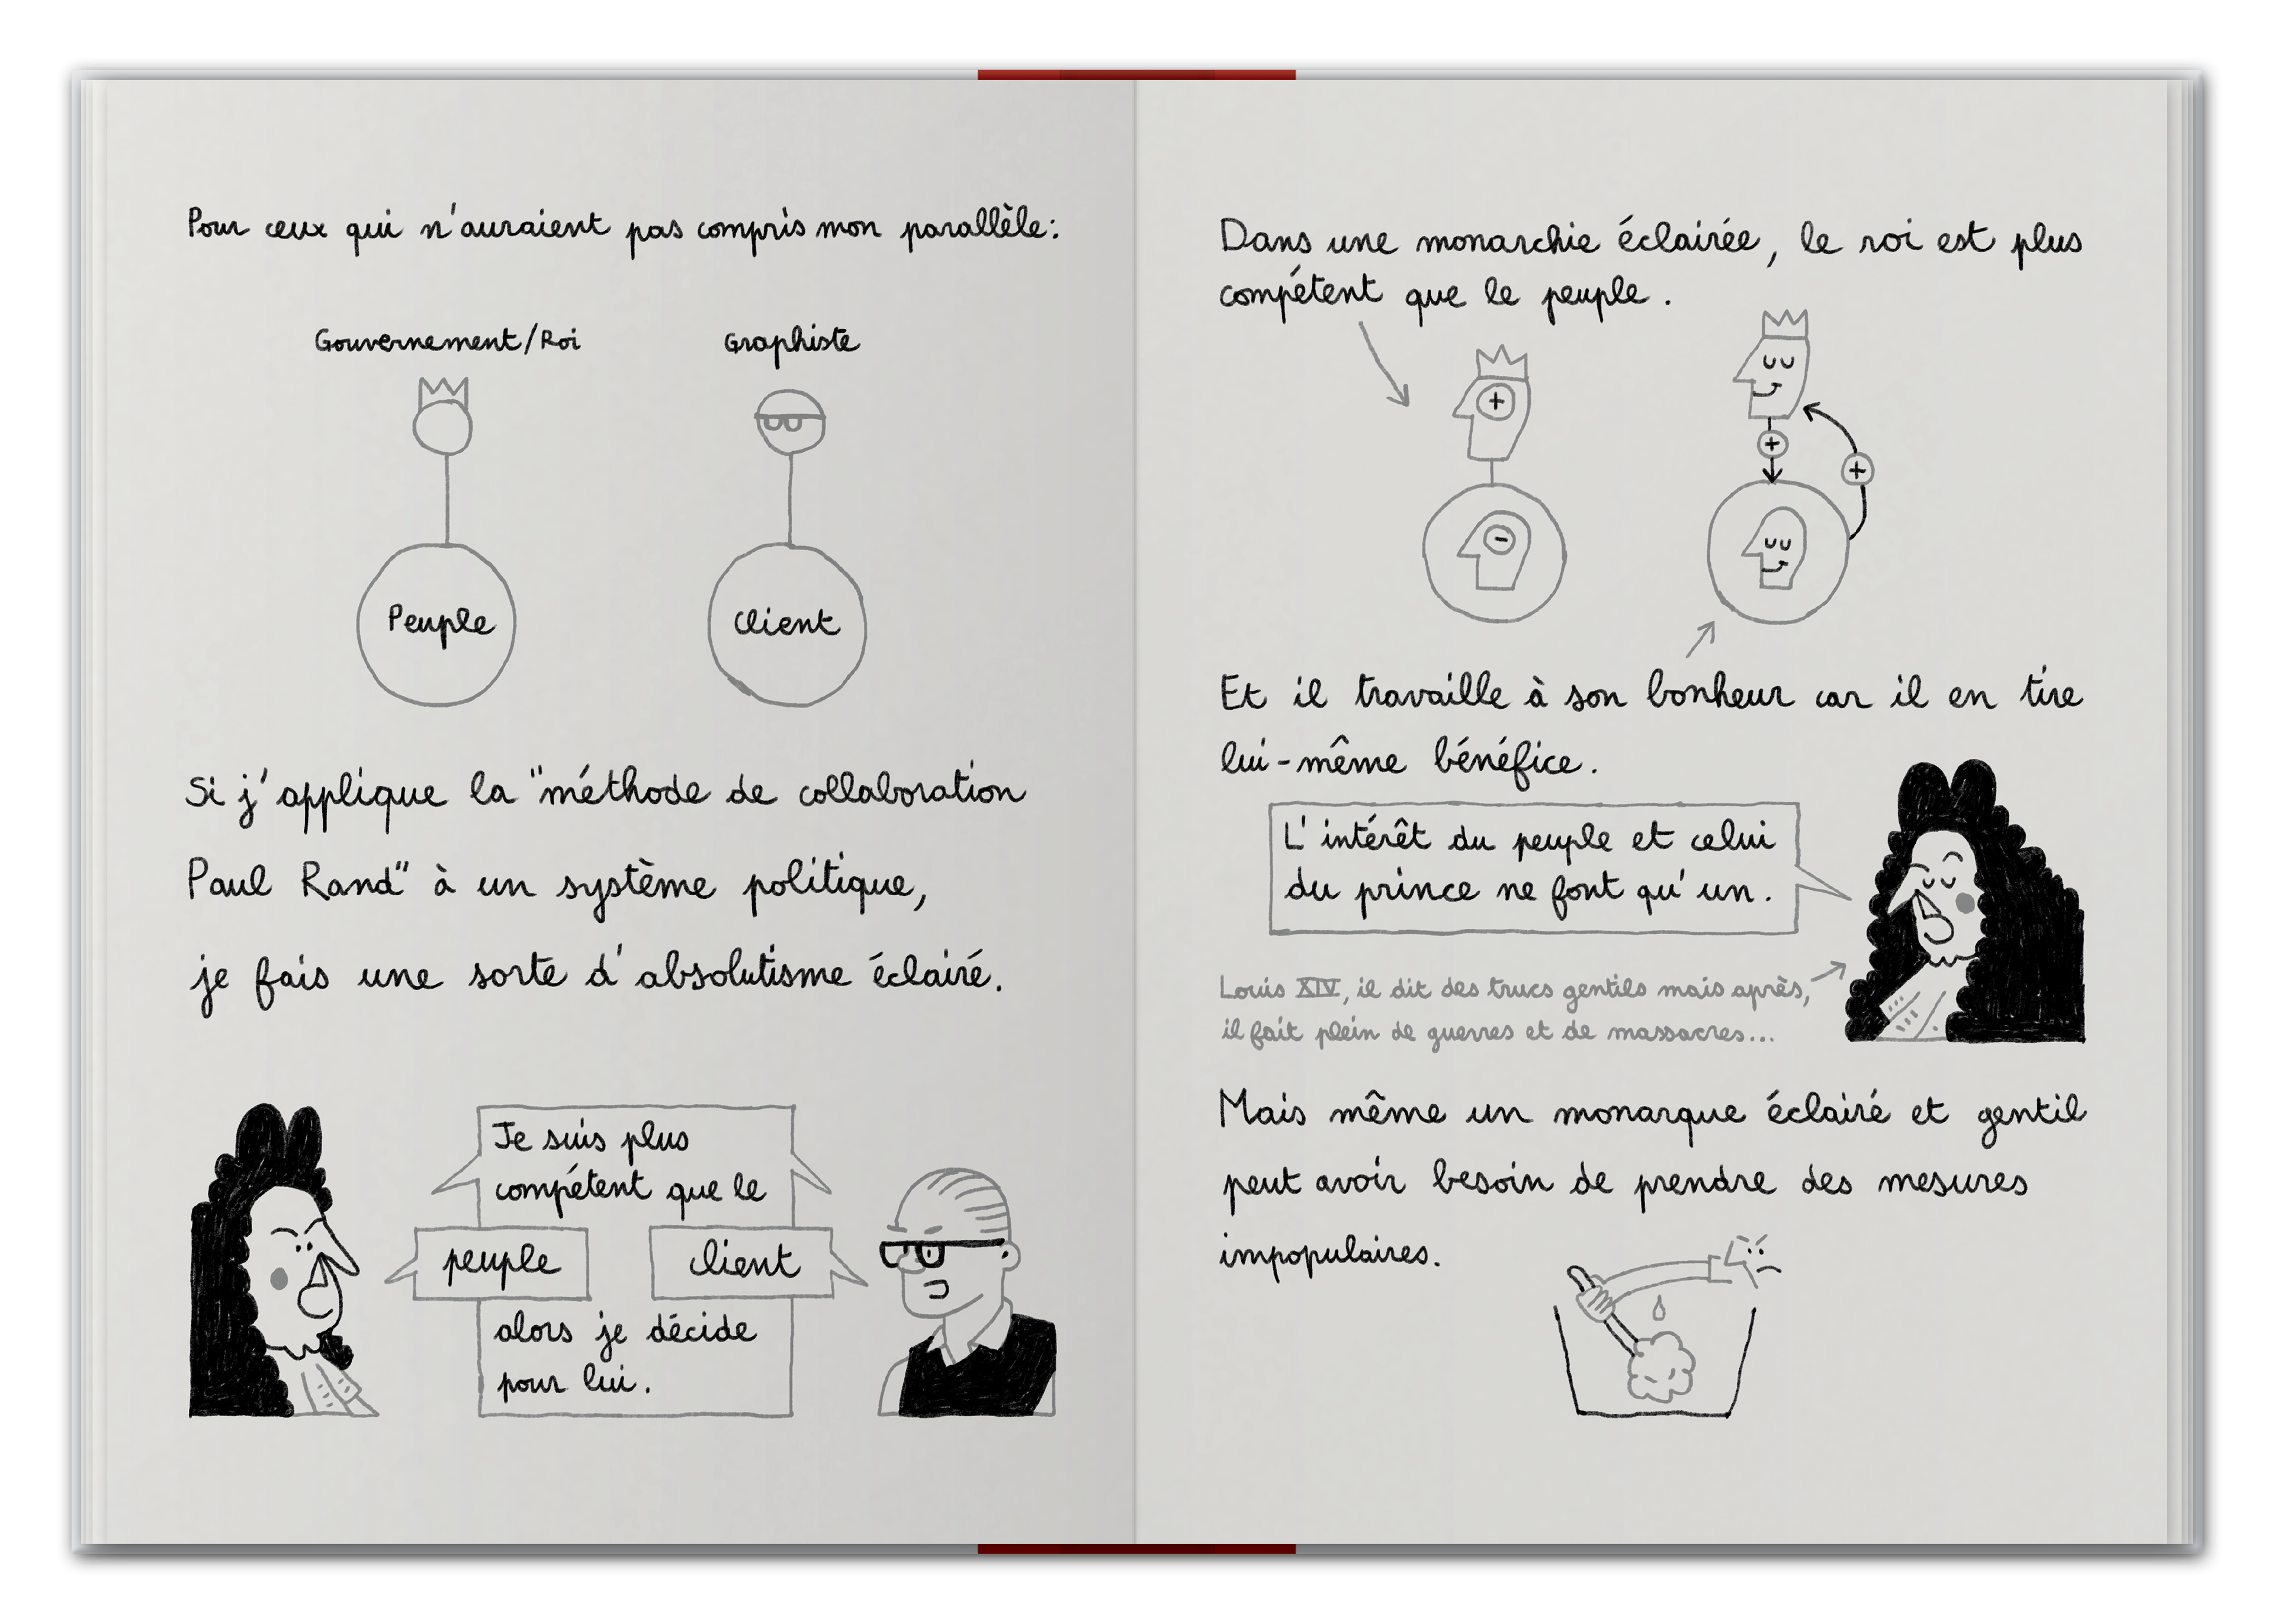 Pour ceux qui n'auraient pas compris mon parallèle:
Gouvernement/Roi
Graphiste
Peuple
Client
Si j'applique la "méthode de collaboration
Paul Rand" à un système politique,
je fais une sorte d'absolutisme éclairé.
Je suis plus
compétent que le
peuple
client
alors je décide
pour lui.
Dans une monarchie éclairée, le roi est plus
compétent que le peuple.
+
-
+
+
Et il travaille à son bonheur car il en tire
lui-même bénéfice.
L'intérêt du peuple et celui
du prince ne font qu'un.
Louis XIV, il dit des trucs gentils mais après,
il fait plein de guerres et de massacres...
Mais même un monarque éclairé et gentil
peut avoir besoin de prendre des mesures
impopulaires.